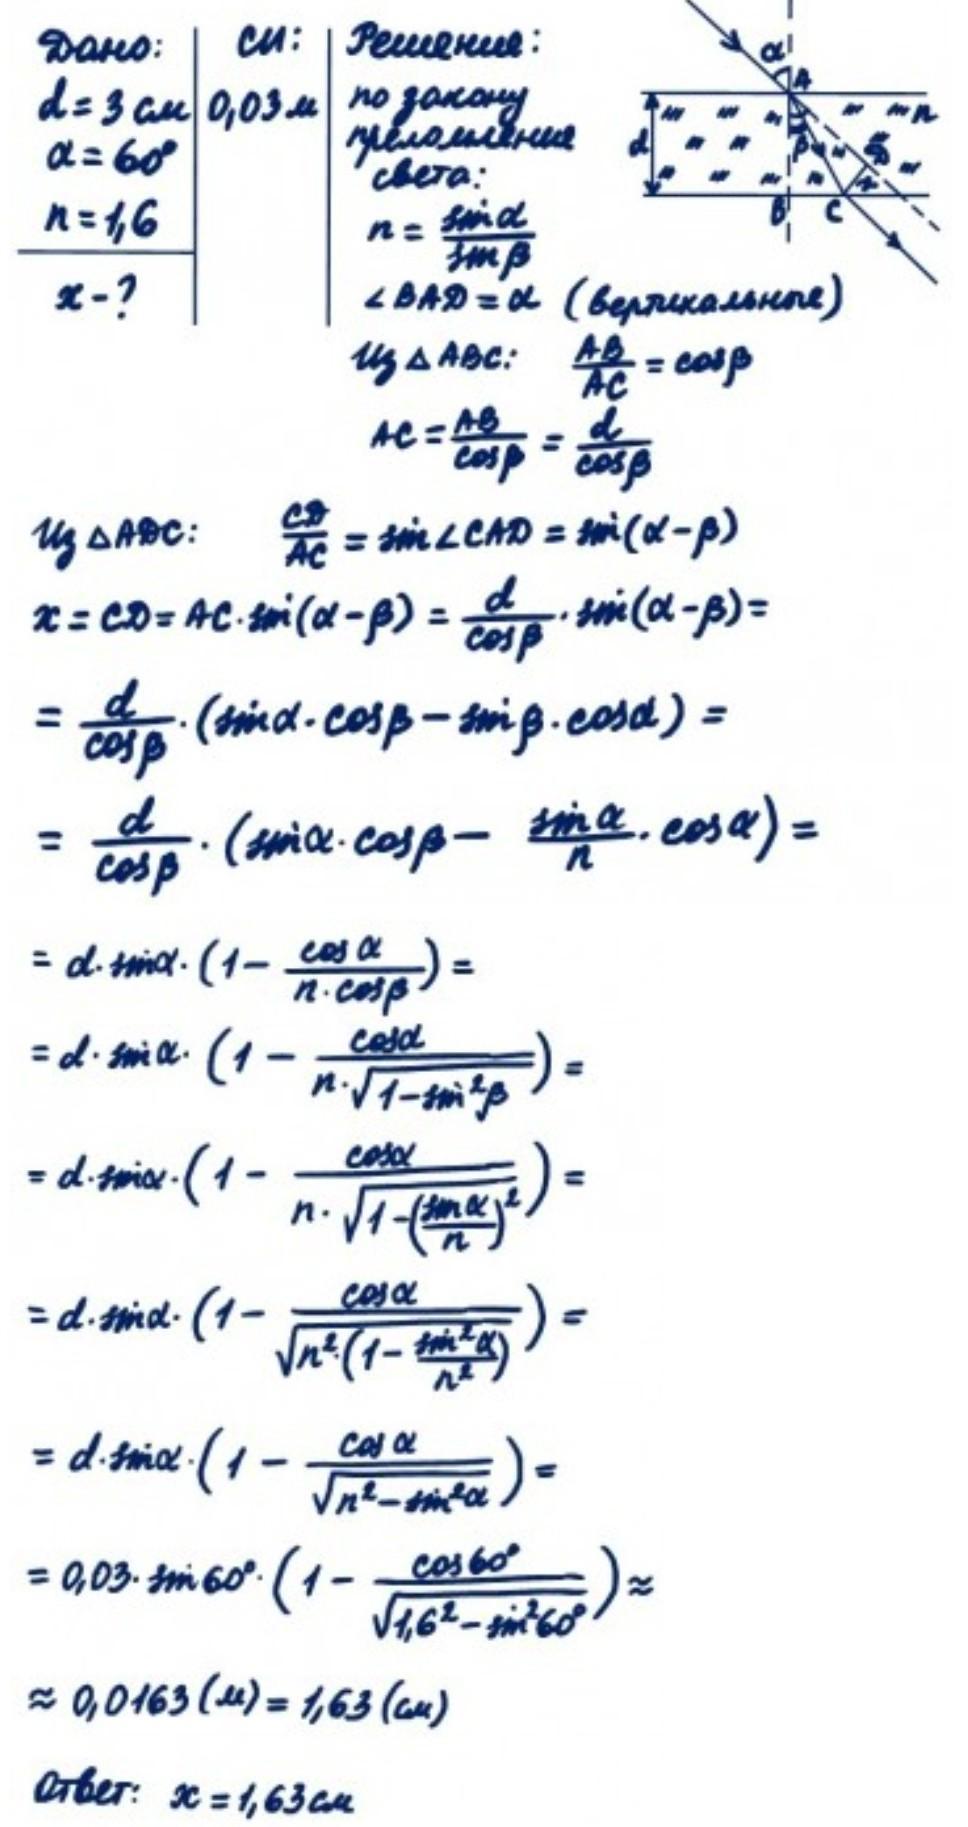 Дано: СИ: Решение:
d = 3 см 0,03 м по закону
преломление
α = 60° света:
n = 1,6 n = sinα / sinβ
x - ? ∠BAD = α (вертикальные)
α A n
d β D x
B C
Из △ABC: AB/AC = cosβ
AC = AB/cosβ = d/cosβ
Из △ADC: CD/AC = sin∠CAD = sin(α-β)
x = CD = AC·sin(α-β) = d/cosβ · sin(α-β) =
= d/cosβ · (sinα·cosβ - sinβ·cosα) =
= d/cosβ · (sinα·cosβ - sinα/n · cosα) =
= d·sinα·(1 - cosα/(n·cosβ)) =
= d·sinα·(1 - cosα/(n·√(1-sin²β))) =
= d·sinα·(1 - cosα/(n·√(1-(sinα/n)²))) =
= d·sinα·(1 - cosα/√(n²·(1-sin²α/n²))) =
= d·sinα·(1 - cosα/√(n²-sin²α)) =
= 0,03·sin60°·(1 - cos60°/√(1,6²-sin²60°)) ≈
≈ 0,0163 (м) = 1,63 (см)
Ответ: x = 1,63 см